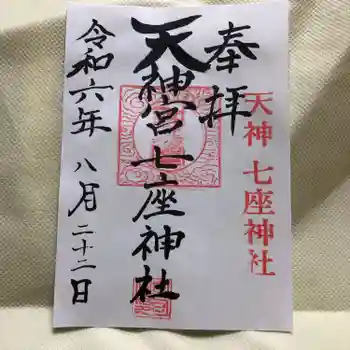 天神 七座神社
奉拝
天神宮 七座神社
令和六年 八月二十二日